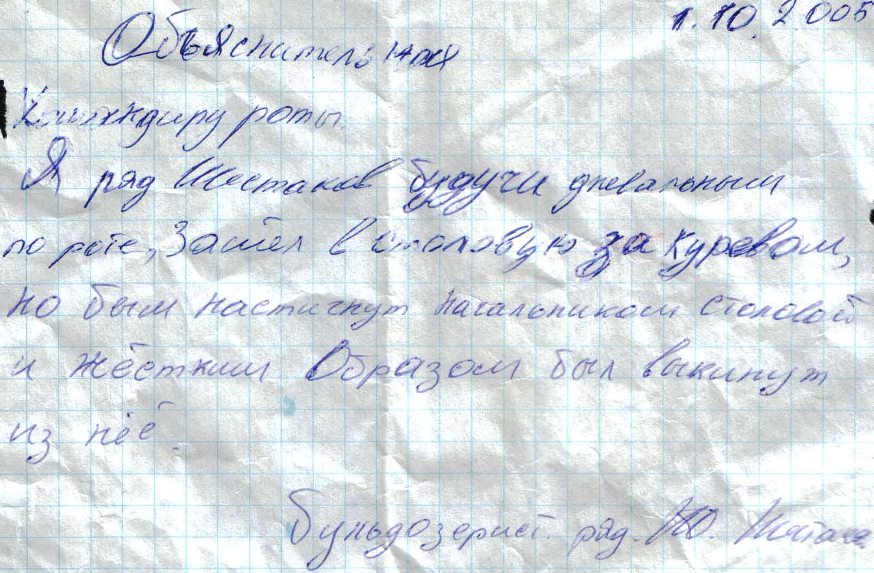 1.10.2005
Объяснительная
Командиру роты.
Я ряд Шестаков будучи дневальным
по роте, Зашёл в столовую за куревом,
но был настигнут начальником столовой
и жёстким Образом был выкинут
из неё.
Бульдозерист. ряд. Ю.